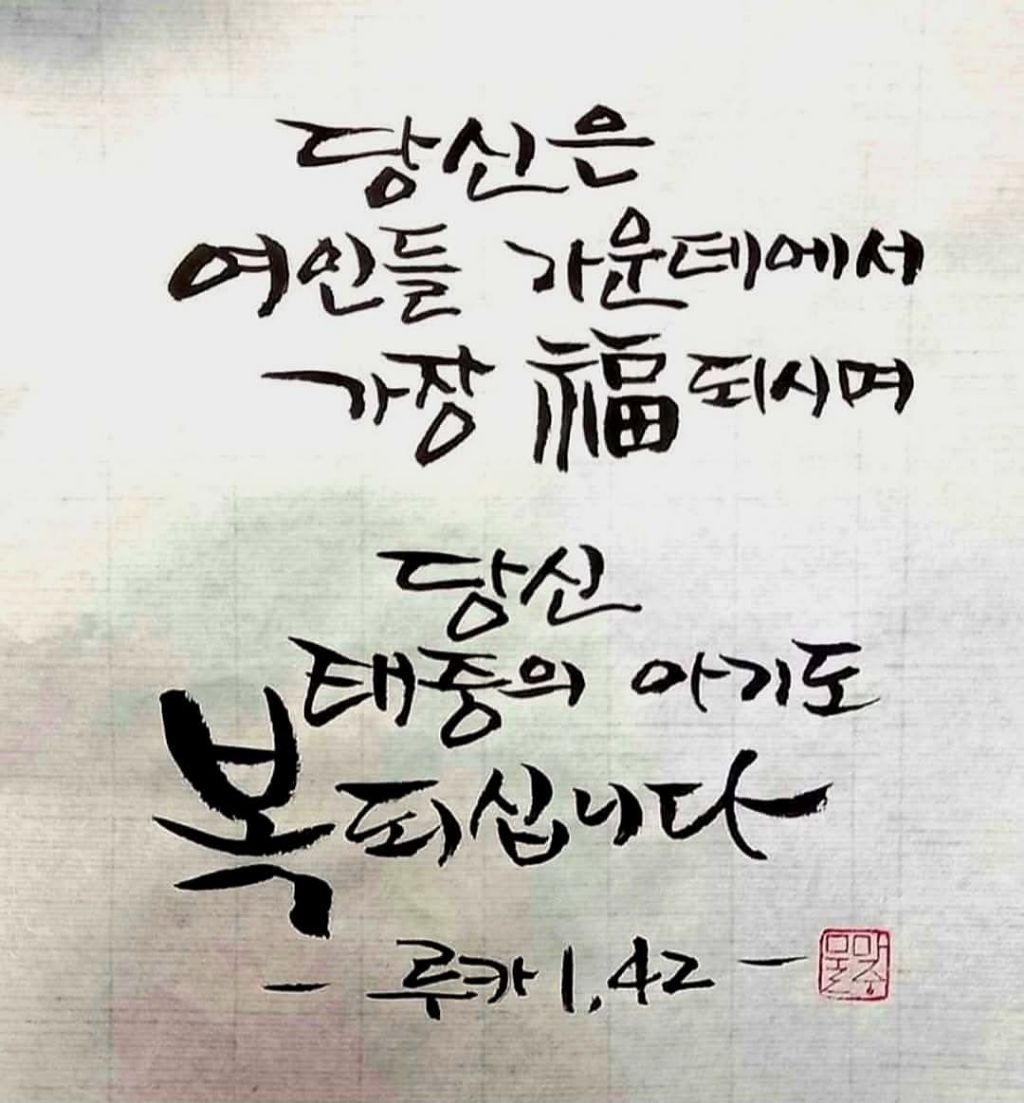 당신은
여인들 가운데에서
가장 福되시며
당신
태중의 아기도
복되십니다
- 루카 1,42 -